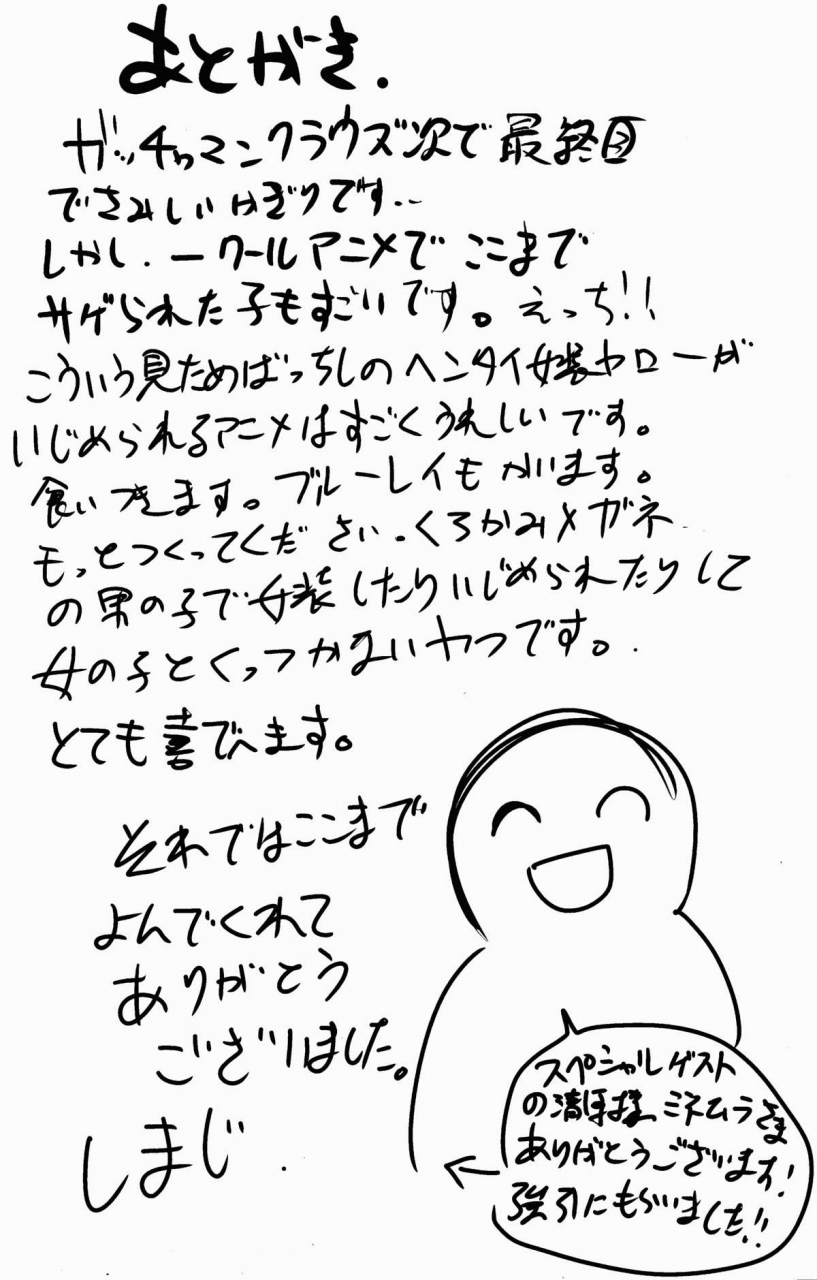 あとがき.
ガッチャマンクラウズ次で最終回
でさみしいかぎりです..
しかし.一クールアニメでここまで
サゲられた子もすごいです。えっち!!
こういう見ためばっちしのヘンタイ女装ヤローが
いじめられるアニメはすごくうれしいです。
食いつきます。ブルーレイもかいます。
もっとつくってください.くろかみメガネ
の男の子で女装したりいじめられたりして
女の子とくっつかないヤつです。.
とても喜でへます。
それではここまで
よんでくれて
ありがとう
ございました。
しまじ.
スペシャルゲスト
の清ほ様、ミネムラさま
ありがとうございます!
強引にもらいました!!